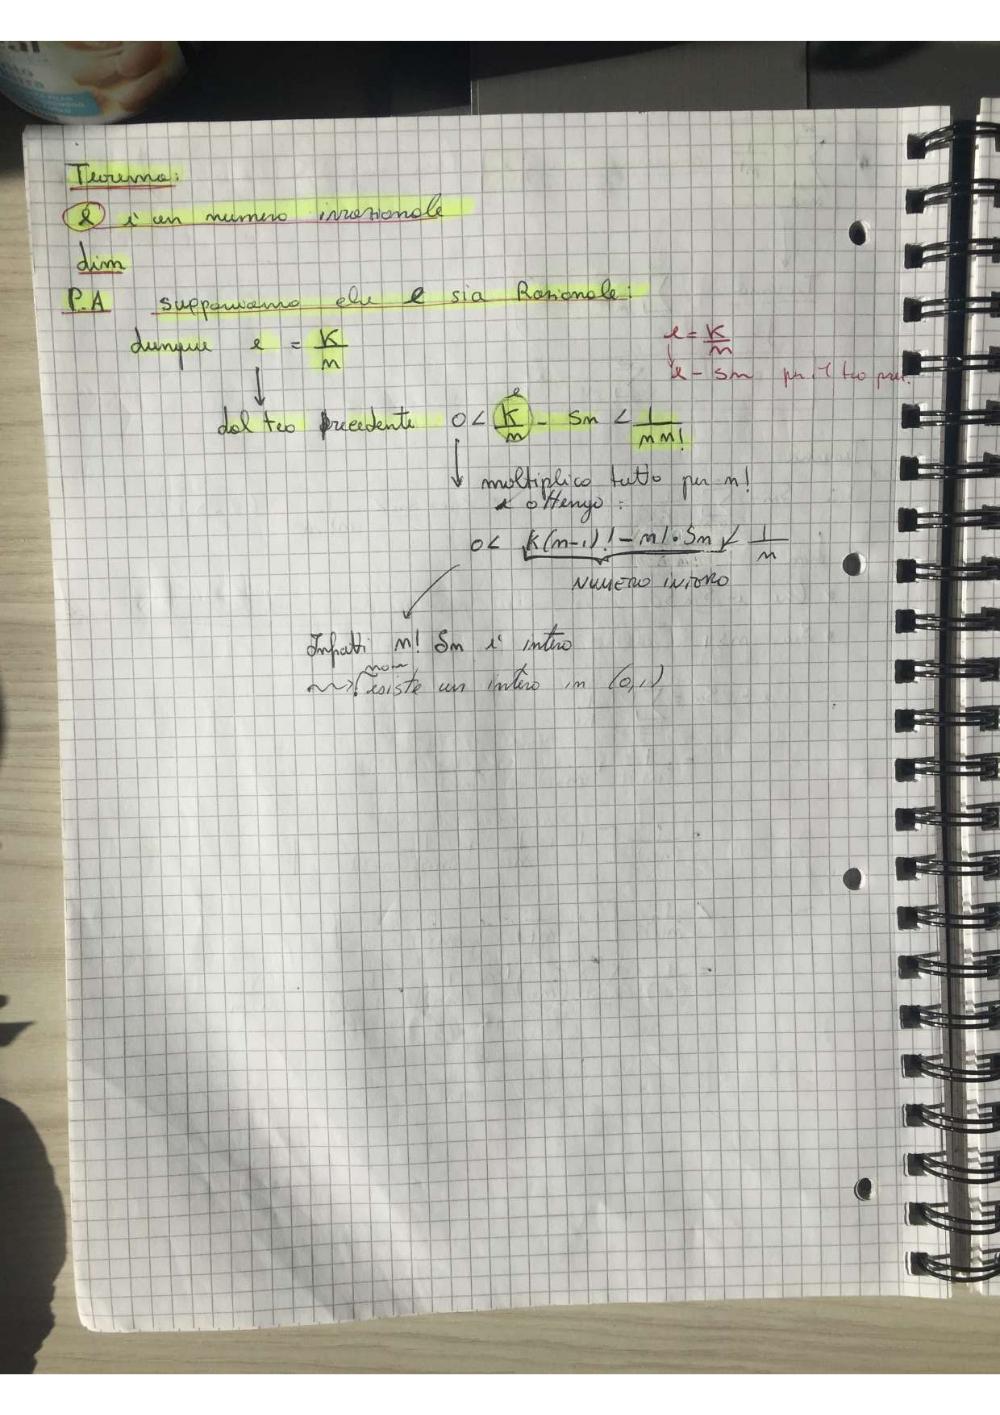 Teorema:
e è un numero irrazionale
dim
P.A supponiamo che e sia Razionale:
dunque e = K/n
e = K/n
e - Sn per il teo prec.
dal teo precedente 0 < K/n - Sn < 1/(n n!)
e
moltiplico tutto per n!
e ottengo:
0 < K(n-1)! - n! · Sn < 1/n
NUMERO INTERO
Infatti n! Sn è intero
non
esiste un intero in (0,1)